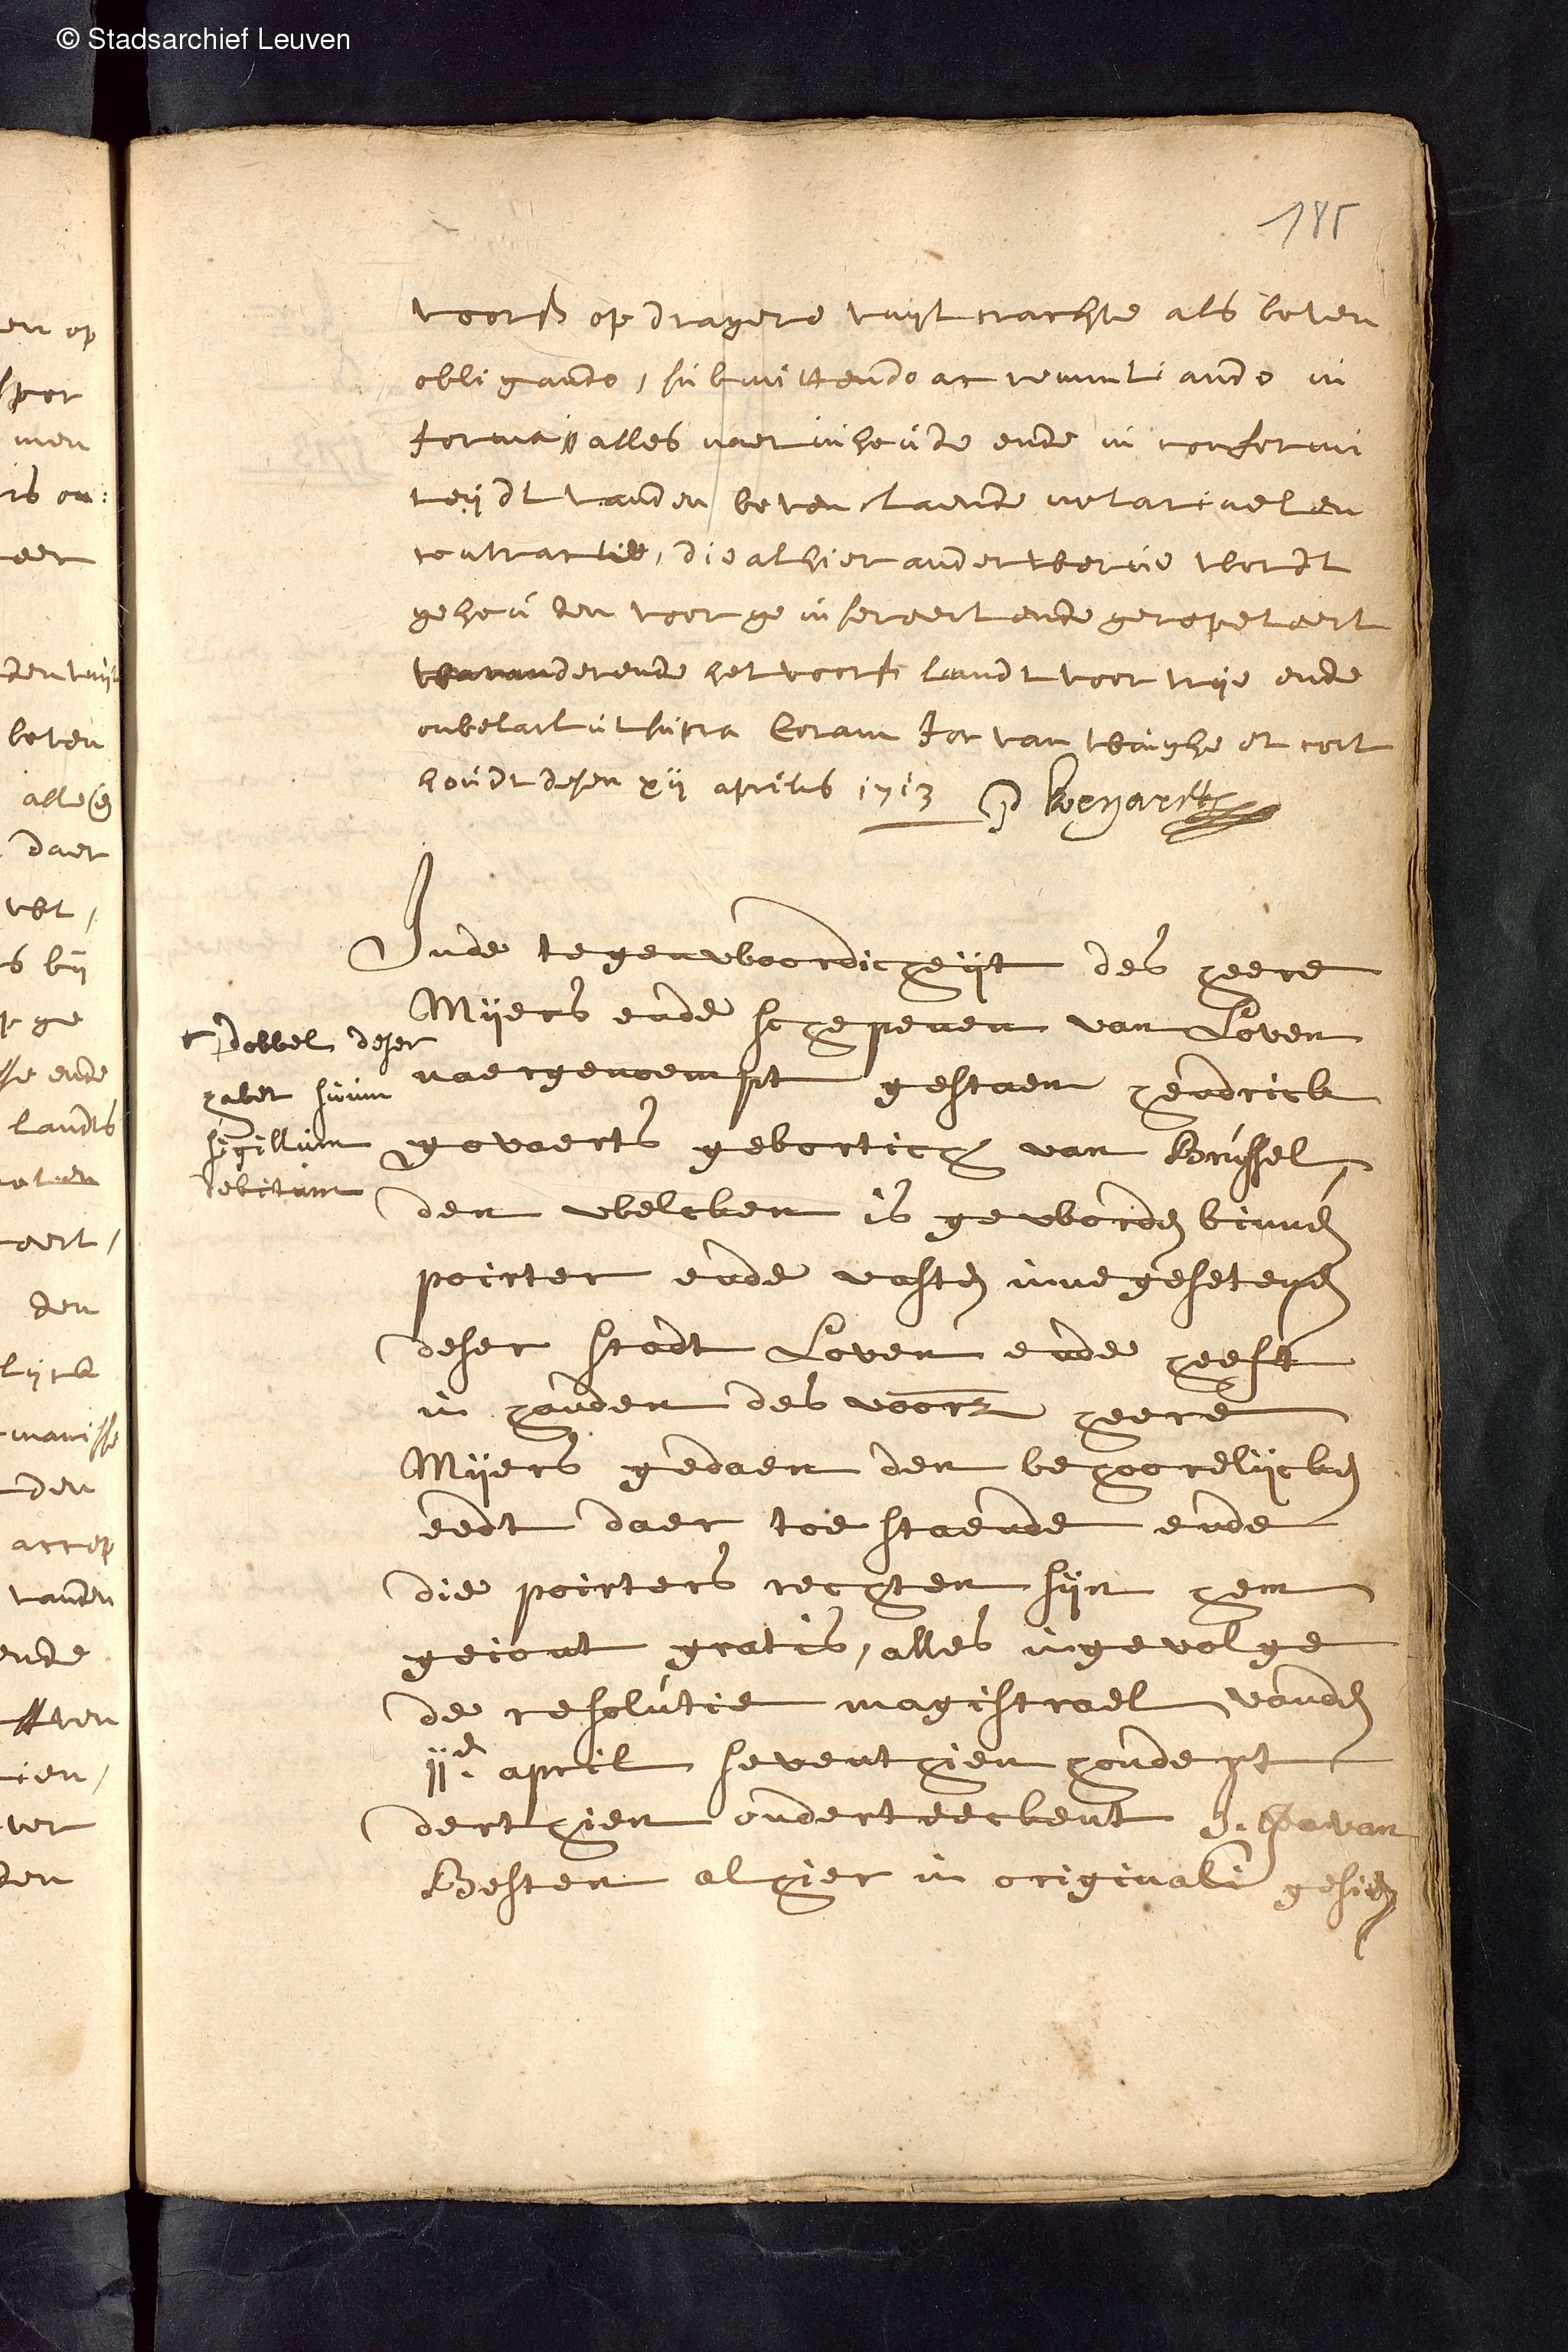 © Stadsarchief Leuven
185
voors opdragere vuyt crachte als boven
obligando, submittendo ac renuntiando in
forma alles naer inhoude ende in conformi
teydt vanden boven staende notariaelen
contracte, die alhier anderwerve wordt
gehouden voor geinsereert ende gerepeteert
waranderende het voors landt voor vrije ende
onbelast ut supra Coram for van Winghe et cort
houdt desen xij aprilis 1713
Inde tegenwoordicheijt des heere
Mijers ende schepenen van Loven
naergenoempt gestaen hendrick
govaerts gebortich van Brussel
den welcken is geworden binnen
poirter ende vasten innegesetenen
deser stadt Loven ende heeft
in handen des voors heere
Mijers gedaen den behoorelijcken
eedt daer toe staende ende
die poirters rechten sijn hem
geiont gratis, alles ingevolge
de resolutie magistrael vanden
11e april seventhien hondert
derthien onderteeckent
Besten alhier in originali gesien
Dobbel deser
habet suum
sigillum
debitum
en op
men
is on:
den vuyt
boven
daer
s bij
ge
ende
landts
den
den
accep
vanden
ende